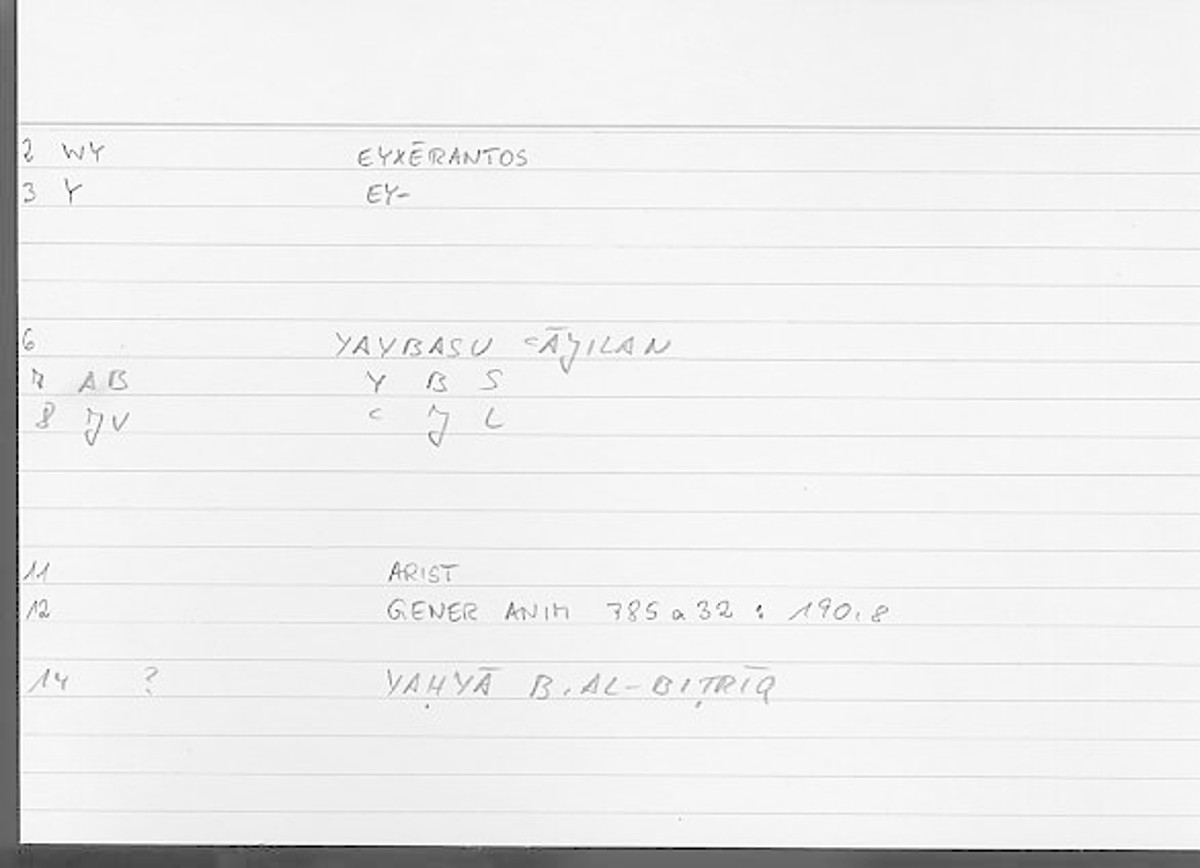 2 WY EYXĒRANTOS
3 Y EY-
6 YAYBASU ᶜĀJILAN
7 AB Y B S
8 JV ᶜ J L
11 ARIST
12 GENER ANIM 785 a 32 : 190.8
14 ? YAḤYĀ B. AL-BIṬRĪQ